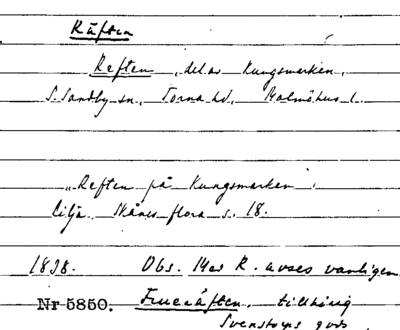 Räften
Reften, del av Kungsmarken,
S. Sandby sn, Torna hd, Malmöhus l.
"Reften på Kungsmarken".
Lilja. Skånes flora s. 18.
1838. Obs. Med R. avses vanligen
Nr 5850. Frueräften, tillhörig
Svenstorps gods.